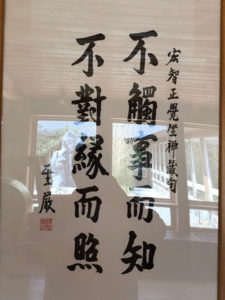 宏智正覺坐禪箴句
不觸事而知
不對緣而照